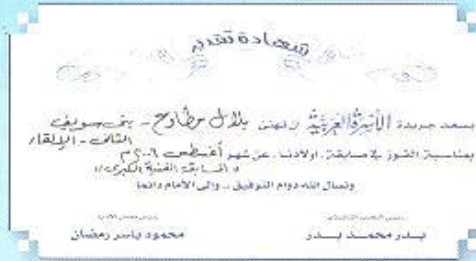 شهادة تقدير
يسعد جريدة الأسرة العربية أن تهنئ بلال مطاوع - بنى سويف
الثانى - الإلقاء
بمناسبة الفوز فى مسابقة أولادنا عن شهر أغسطس ٢٠٠٦م
" المسابقة الفنية الكبرى "
ونسأل الله دوام التوفيق .. وإلى الأمام دائما
رئيس مجلس الإدارة
محمود ياسر رمضان
رئيس التحرير التنفيذى
بدر محمد بدر